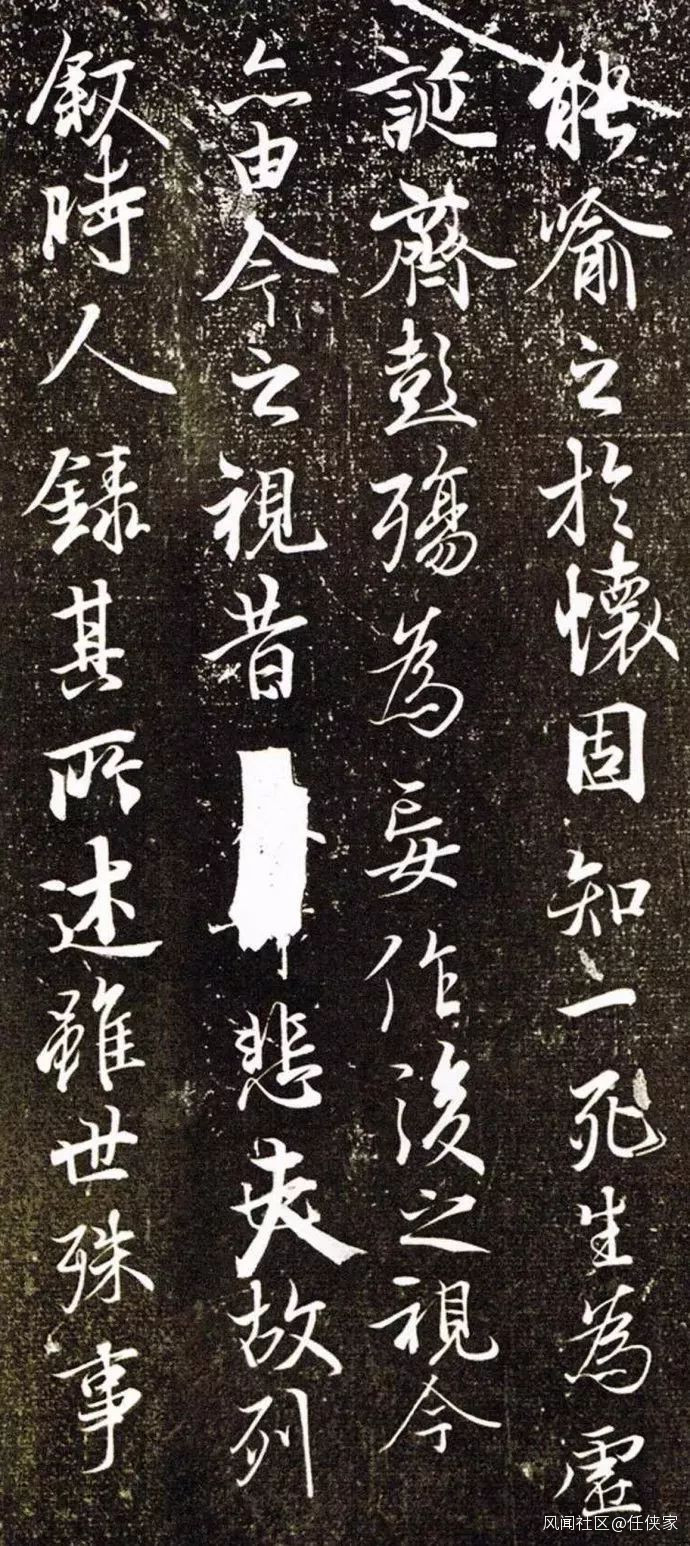 能喻之於懷固知一死生為虛
誕齊彭殤為妄作後之視今
亦由今之視昔悲夫故列
敘時人錄其所述雖世殊事
风闻社区@任侠家